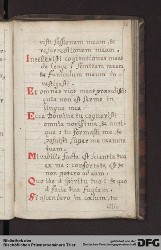 visti sessionem meam, &
resurrectionem meam.
Intellexisti cogitationes meas
de longe: semitam meam,
& funiculum meum in-
vestigasti.
Et omnes vias meas praevidisti:
quia non est sermo in
lingua mea.
Ecce Domine tu cognovisti
omnia novissima, & anti-
qua: tu formasti me, &
posuisti super me manum
tuam.
Mirabilis facta est scientia tua
ex me: confortata est, & 
non potero ad eam.
Quo ibo a spiritu tuo: & quo
a facie tua fugiam.
Si ascendero in coelum, tu
Bibliothek des
Bischöflichen Priesterseminars Trier
DFG